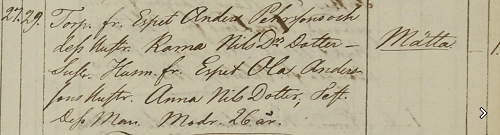 27. 29. Torp. fr. Espet Anders Pehrsson och
dess Hustr. Karna Nils Ds Dotter – Mätta.
Susc. Husm. fr. Espet Olas Anders
sons Hustr. Anna Nils Dotter, Test.
Dess Man. Modr. 26 år.